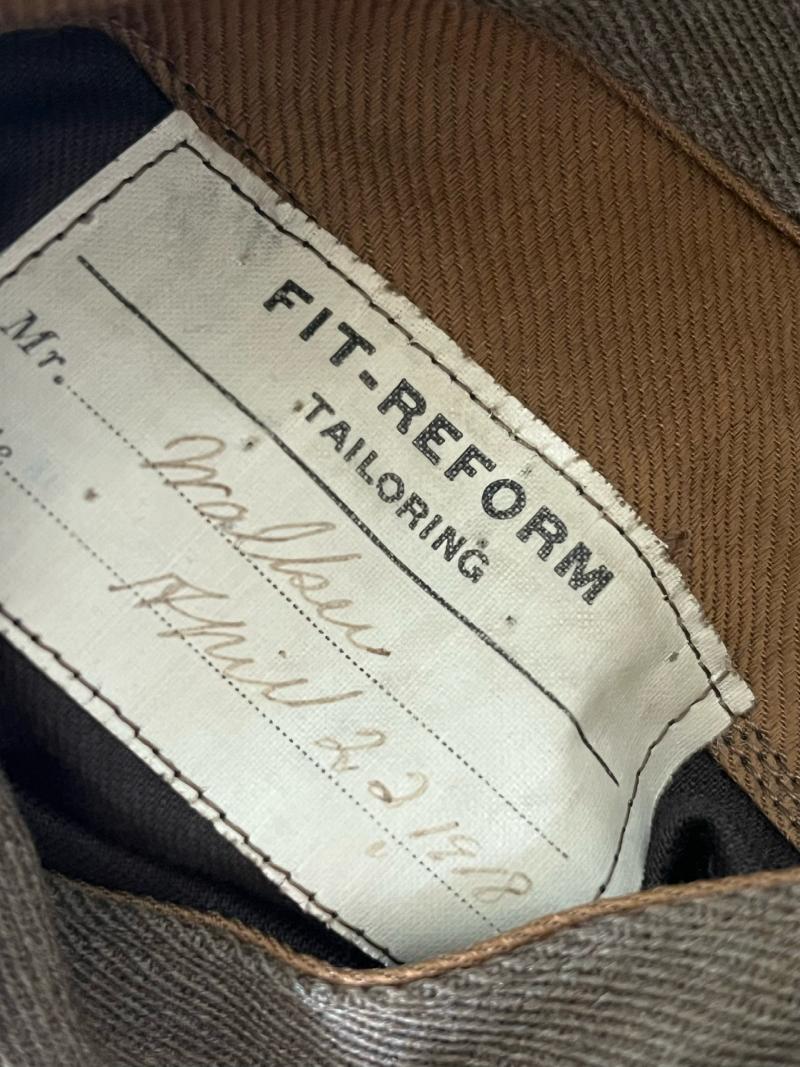 FIT-REFORM
TAILORING
Mr. Walker
April 22 1918